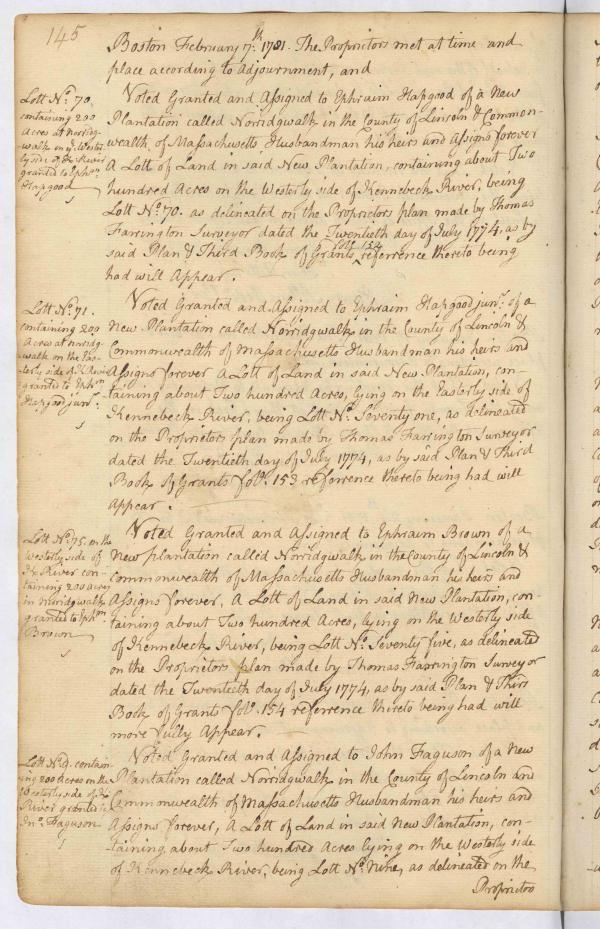 145
Boston February 7th. 1781. The Proprietors met at time and
place according to Adjournment, and
Lott No. 70.
containing 200
Acres at Norridg-
walk on ye. Wester-
ly side of Ke. River
granted to Ephm.
Hapgood
Voted Granted and Assigned to Ephraim Hapgood of a New
Plantation called Norridgwalk in the County of Lincoln & Common-
wealth of Massachusetts Husbandman his heirs and Assigns forever
A Lott of Land in said New Plantation, containing about Two
hundred Acres on the Westerly side of Kennebeck River, being
Lott No. 70. as delineated on the Proprietors plan made by Thomas
Farrington Surveyor dated the Twentieth day of July 1774, as by
said Plan & Third Book of Grants folo. 154 referrence thereto being
had will Appear.
Lott No. 71.
containing 200
Acres at Norridg-
walk on the Eas-
terly side of K. River
granted to Ephm.
Hapgood junr.
Voted Granted and Assigned to Ephraim Hapgood junr. of a
New Plantation called Norridgwalk in the County of Lincoln &
Commonwealth of Massachusetts Husbandman his heirs and
Assigns forever A Lott of Land in said New Plantation, con-
taining about Two hundred Acres, lying on the Easterly side of
Kennebeck River, being Lott No. Seventy one, as delineated
on the Proprietors plan made by Thomas Farrington Surveyor
dated the Twentieth day of July 1774, as by said Plan & Third
Book of Grants folo. 153 referrence thereto being had will
Appear.
Lott No. 75. on the
Westerly side of
Ke. River con-
taining 200 acres
in Norridgwalk
granted to Ephm.
Brown
Voted Granted and Assigned to Ephraim Brown of a
New plantation called Norridgwalk in the County of Lincoln &
Commonwealth of Massachusetts Husbandman his heirs and
Assigns forever, A Lott of Land in said New Plantation, con-
taining about Two hundred Acres, lying on the Westerly side
of Kennebeck River, being Lott No. Seventy five, as delineated
on the Proprietors plan made by Thomas Farrington Surveyor
dated the Twentieth day of July 1774, as by said Plan & Third
Book of Grants folo. 154 referrence thereto being had will
more fully Appear.
Lott No. 9. contain-
ing 200 Acres on the
Westerly side of Ke.
River granted to
Jno. Faguson
Voted Granted and Assigned to John Faguson of a New
Plantation called Norridgwalk in the County of Lincoln and
Commonwealth of Massachusetts Husbandman his heirs and
Assigns forever, A Lott of Land in said New Plantation, con-
taining about Two hundred Acres lying on the Westerly side
of Kennebeck River, being Lott No. Nine, as delineated on the
Proprietors